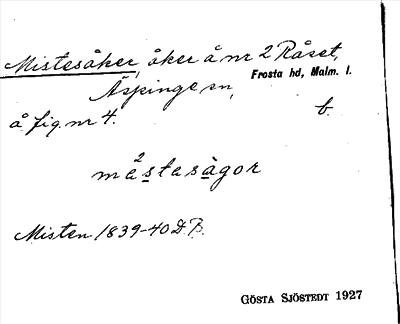 Mistesåker, åker å nr 2 Råset,
Frosta hd, Malm. l.
Äspinge sn,
å fig. nr 4. b.
mås²tasàgor
Misten 1839-40 D.B.
GÖSTA SJÖSTEDT 1927